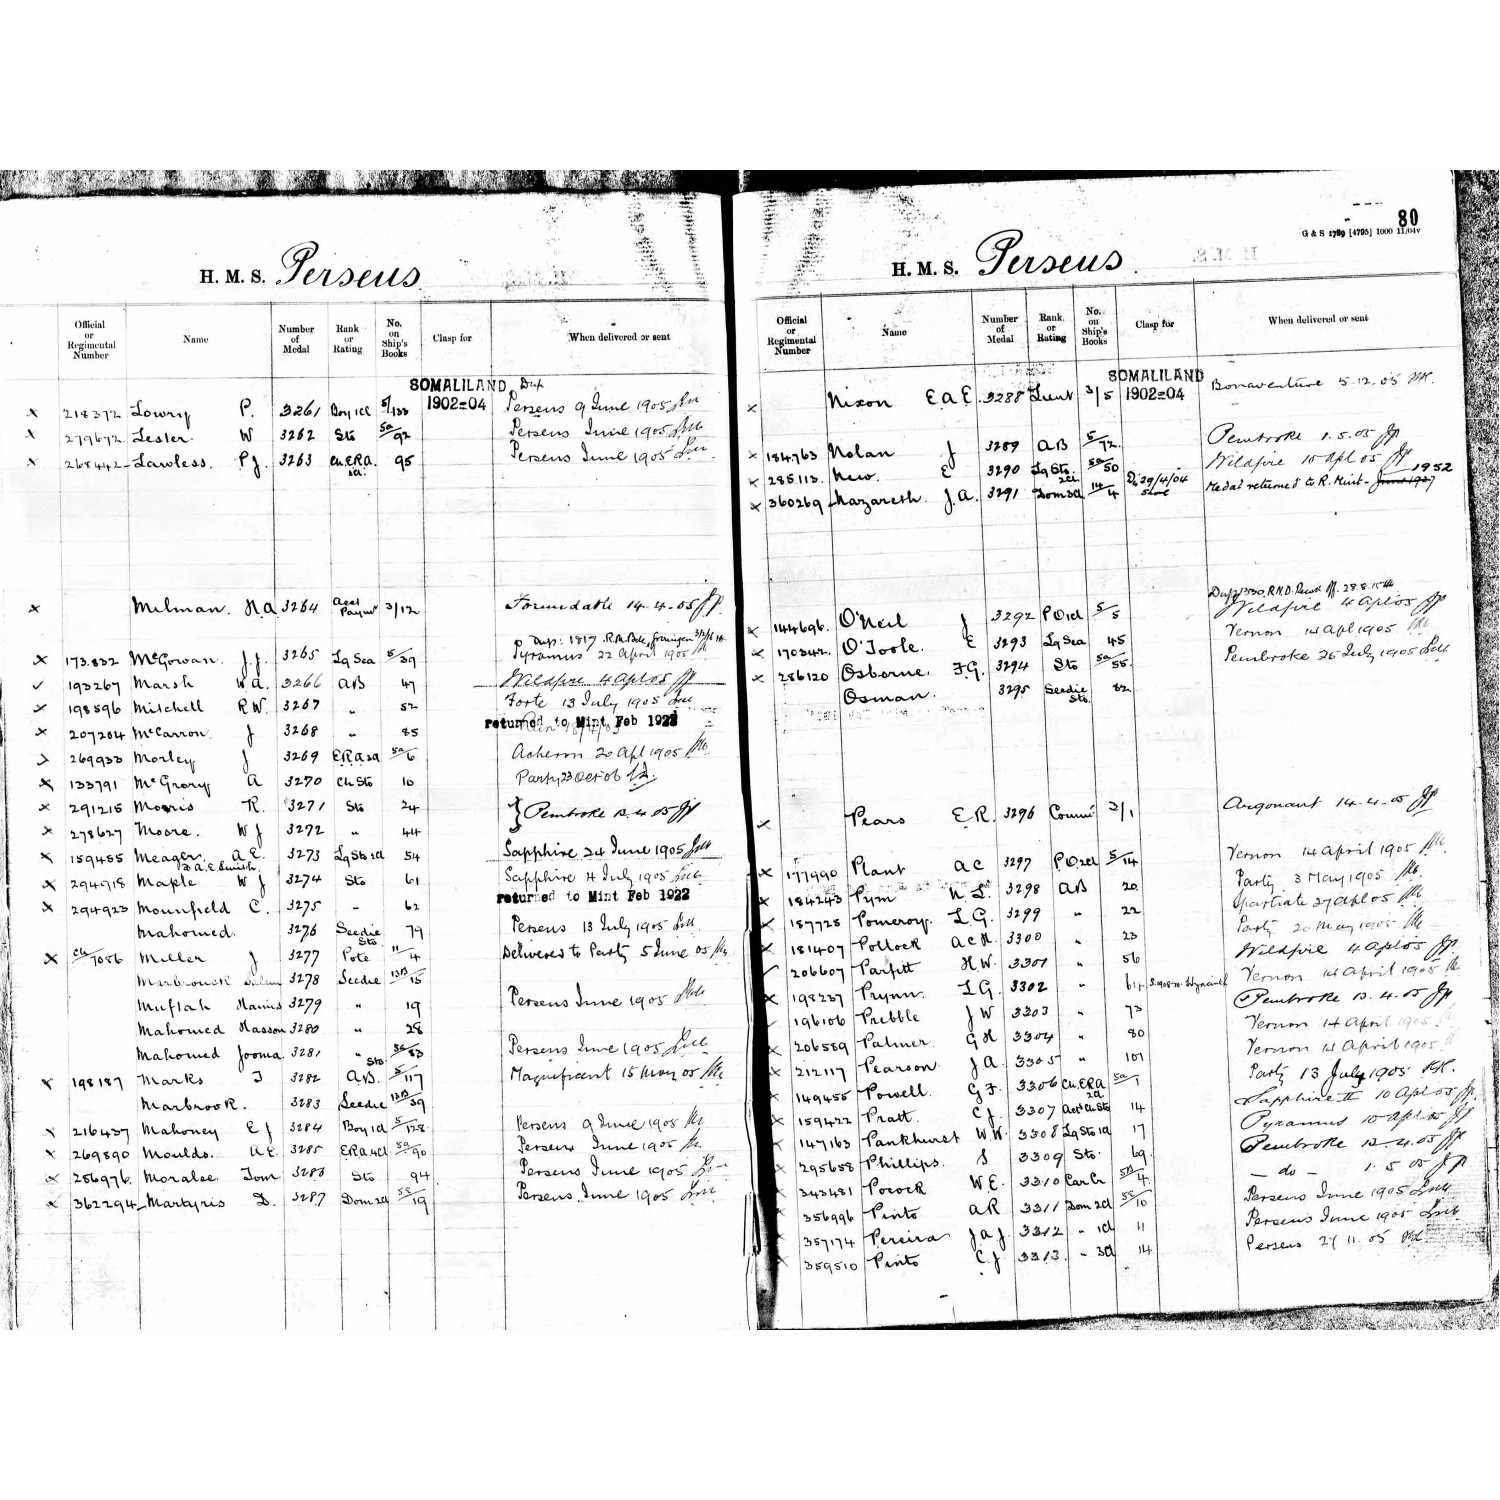 H. M. S. Perseus
Official or Regimental Number | Name | Number of Medal | Rank or Rating | No. on Ship's Books | Clasp for | When delivered or sent
SOMALILAND 1902=04 Dup
x 218372 Lowry P. 3261 Boy 1cl 5/133 Perseus 9 June 1905
x 279672 Lester W 3262 Sto 5a/92 Perseus June 1905
x 268442 Lawless. P J. 3263 Ch. E.R.A. 2cl. 95 Perseus June 1905
x Milman. H.A. 3264 Asst Paymr 3/12 Formidable 14-4-05
Dup: 1817 R.N. Bde, Groningen
x 173.832 McGowan. J.J. 3265 Lg Sea 5/39 Pyramus 22 April 1905
193267 Marsh W.A. 3266 A.B 47 Wildfire 4 Apl 05
x 198596 Mitchell R.W. 3267 " 52 Forte 13 July 1905
x 207204 McCarron. J 3268 " 85 returned to Mint Feb 1922
269933 Morley J 3269 E.R.A 3cl 5a/6 Acheron 20 Apl 1905
x 133791 McGrory A 3270 Ch Sto 10 Party 23 Oct 06
x 291215 Morris R. 3271 Sto 24 } Pembroke 12.4.05
x 278627 Moore. W J 3272 " 44
x 159455 Meager. A E. 3273 Lg Sto 2cl 54 Sapphire 24 June 1905
A.E. Smith.
x 294918 Maple W J 3274 Sto 61 Sapphire 4 July 1905
x 294923 Mounfield C. 3275 " 62 returned to Mint Feb 1922
Mahomed. 3276 Seedie Sto 79 Perseus 13 July 1905
x Ch/7086 Miller J 3277 Pote 11/4 Delivered to Party 5 June 05
Marbrouck 3278 Seedie 13B/15
Muftah 3279 " 19 Perseus June 1905
Mahomed Hasson 3280 " 28
Mahomed Jooma 3281 " Sto 5c/83 Perseus June 1905
x 198187 Marks J 3282 A.B. 5/117 Magnificent 15 May 05
Marbrook. 3283 Seedie 13B/39
x 216437 Mahoney E J 3284 Boy 1cl 5/128 Perseus 9 June 1905
x 269890 Moulds. A.E. 3285 E.R.A 4cl 5a/90 Perseus June 1905
x 286976 Moralee Tom 3286 Sto 94 Perseus June 1905
x 362294 Martyris D. 3287 Dom 2cl 5c/19 Perseus June 1905
80
G & S 1789 [4795] 1000 11/04v
H. M. S. Perseus.
Official or Regimental Number | Name | Number of Medal | Rank or Rating | No. on Ship's Books | Clasp for | When delivered or sent
SOMALILAND 1902=04
x Nixon E.A.E. 3288 Lieut 3/5 Bonaventure 5.12.05
x 184763 Nolan J 3289 A.B 5/72 Pembroke 1.5.05
x 285113 New. E 3290 Lg Sto. 2cl 5a/50 Wildfire 10 Apl 05
x 360269 Nazareth. J.A. 3291 Dom 3cl 14/4 D. 29/4/04 Medal returned to R. Mint - June 1927 1952
R.N.D. 28.8.15
x 144696. O'Neil J 3292 P.O 1cl 5/5 Wildfire 4 Apl 05
x 170342. O'Toole. E 3293 Lg Sea 45 Vernon 14 Apl 1905
x 286120 Osborne. F.G. 3294 Sto 5a/55 Pembroke 25 July 1905
Osman. 3295 Seedie Sto. 82
x Pears E.R. 3296 Comr 3/1 Argonaut 14-4-05
x 177990 Plant A C 3297 P.O 2cl 5/14 Vernon 14 April 1905
x 184243 Pym W.L. 3298 A.B 20. Party 3 May 1905
x 187728 Pomeroy. L.G. 3299 " 22 Spartiate 27 Apl 05
x 181407 Pollock A C H. 3300 " 23 Party 20 May 1905
206607 Parfitt H.W. 3301 " 56 Wildfire 4 Apl 05
x 198237 Prynn. L.G. 3302 " 61 Vernon 14 April 1905
196106 Prebble J W 3303 " 73 Pembroke 12.4.05
x 206589 Palmer. G H 3304 " 80 Vernon 14 April 1905
x 212117 Pearson. J A. 3305 " 101 Vernon 14 April 1905
x 149455 Powell. G F. 3306 Ch. E.R.A 2cl 5a/1 Party 13 July 1905
x 159422 Pratt. C J. 3307 Actg Ch. Sto 14 Sapphire II 10 Apl 05
x 147163 Pankhurst W.W. 3308 Lg Sto 1cl 17 Pyramus 10 Apl 05
x 295658 Phillips. S 3309 Sto. 69. Pembroke 12-4.05
x 343481 Pocock W.E. 3310 Car Cr 5B/4 - do - 1.5.05
356996 Pinto A R 3311 Dom 2cl 5c/10 Perseus June 1905
357174 Pereira J A J. 3312 " 1cl 11 Perseus June 1905
359510 Pinto C. J. 3313. " 3cl 14 Perseus 27.11.05